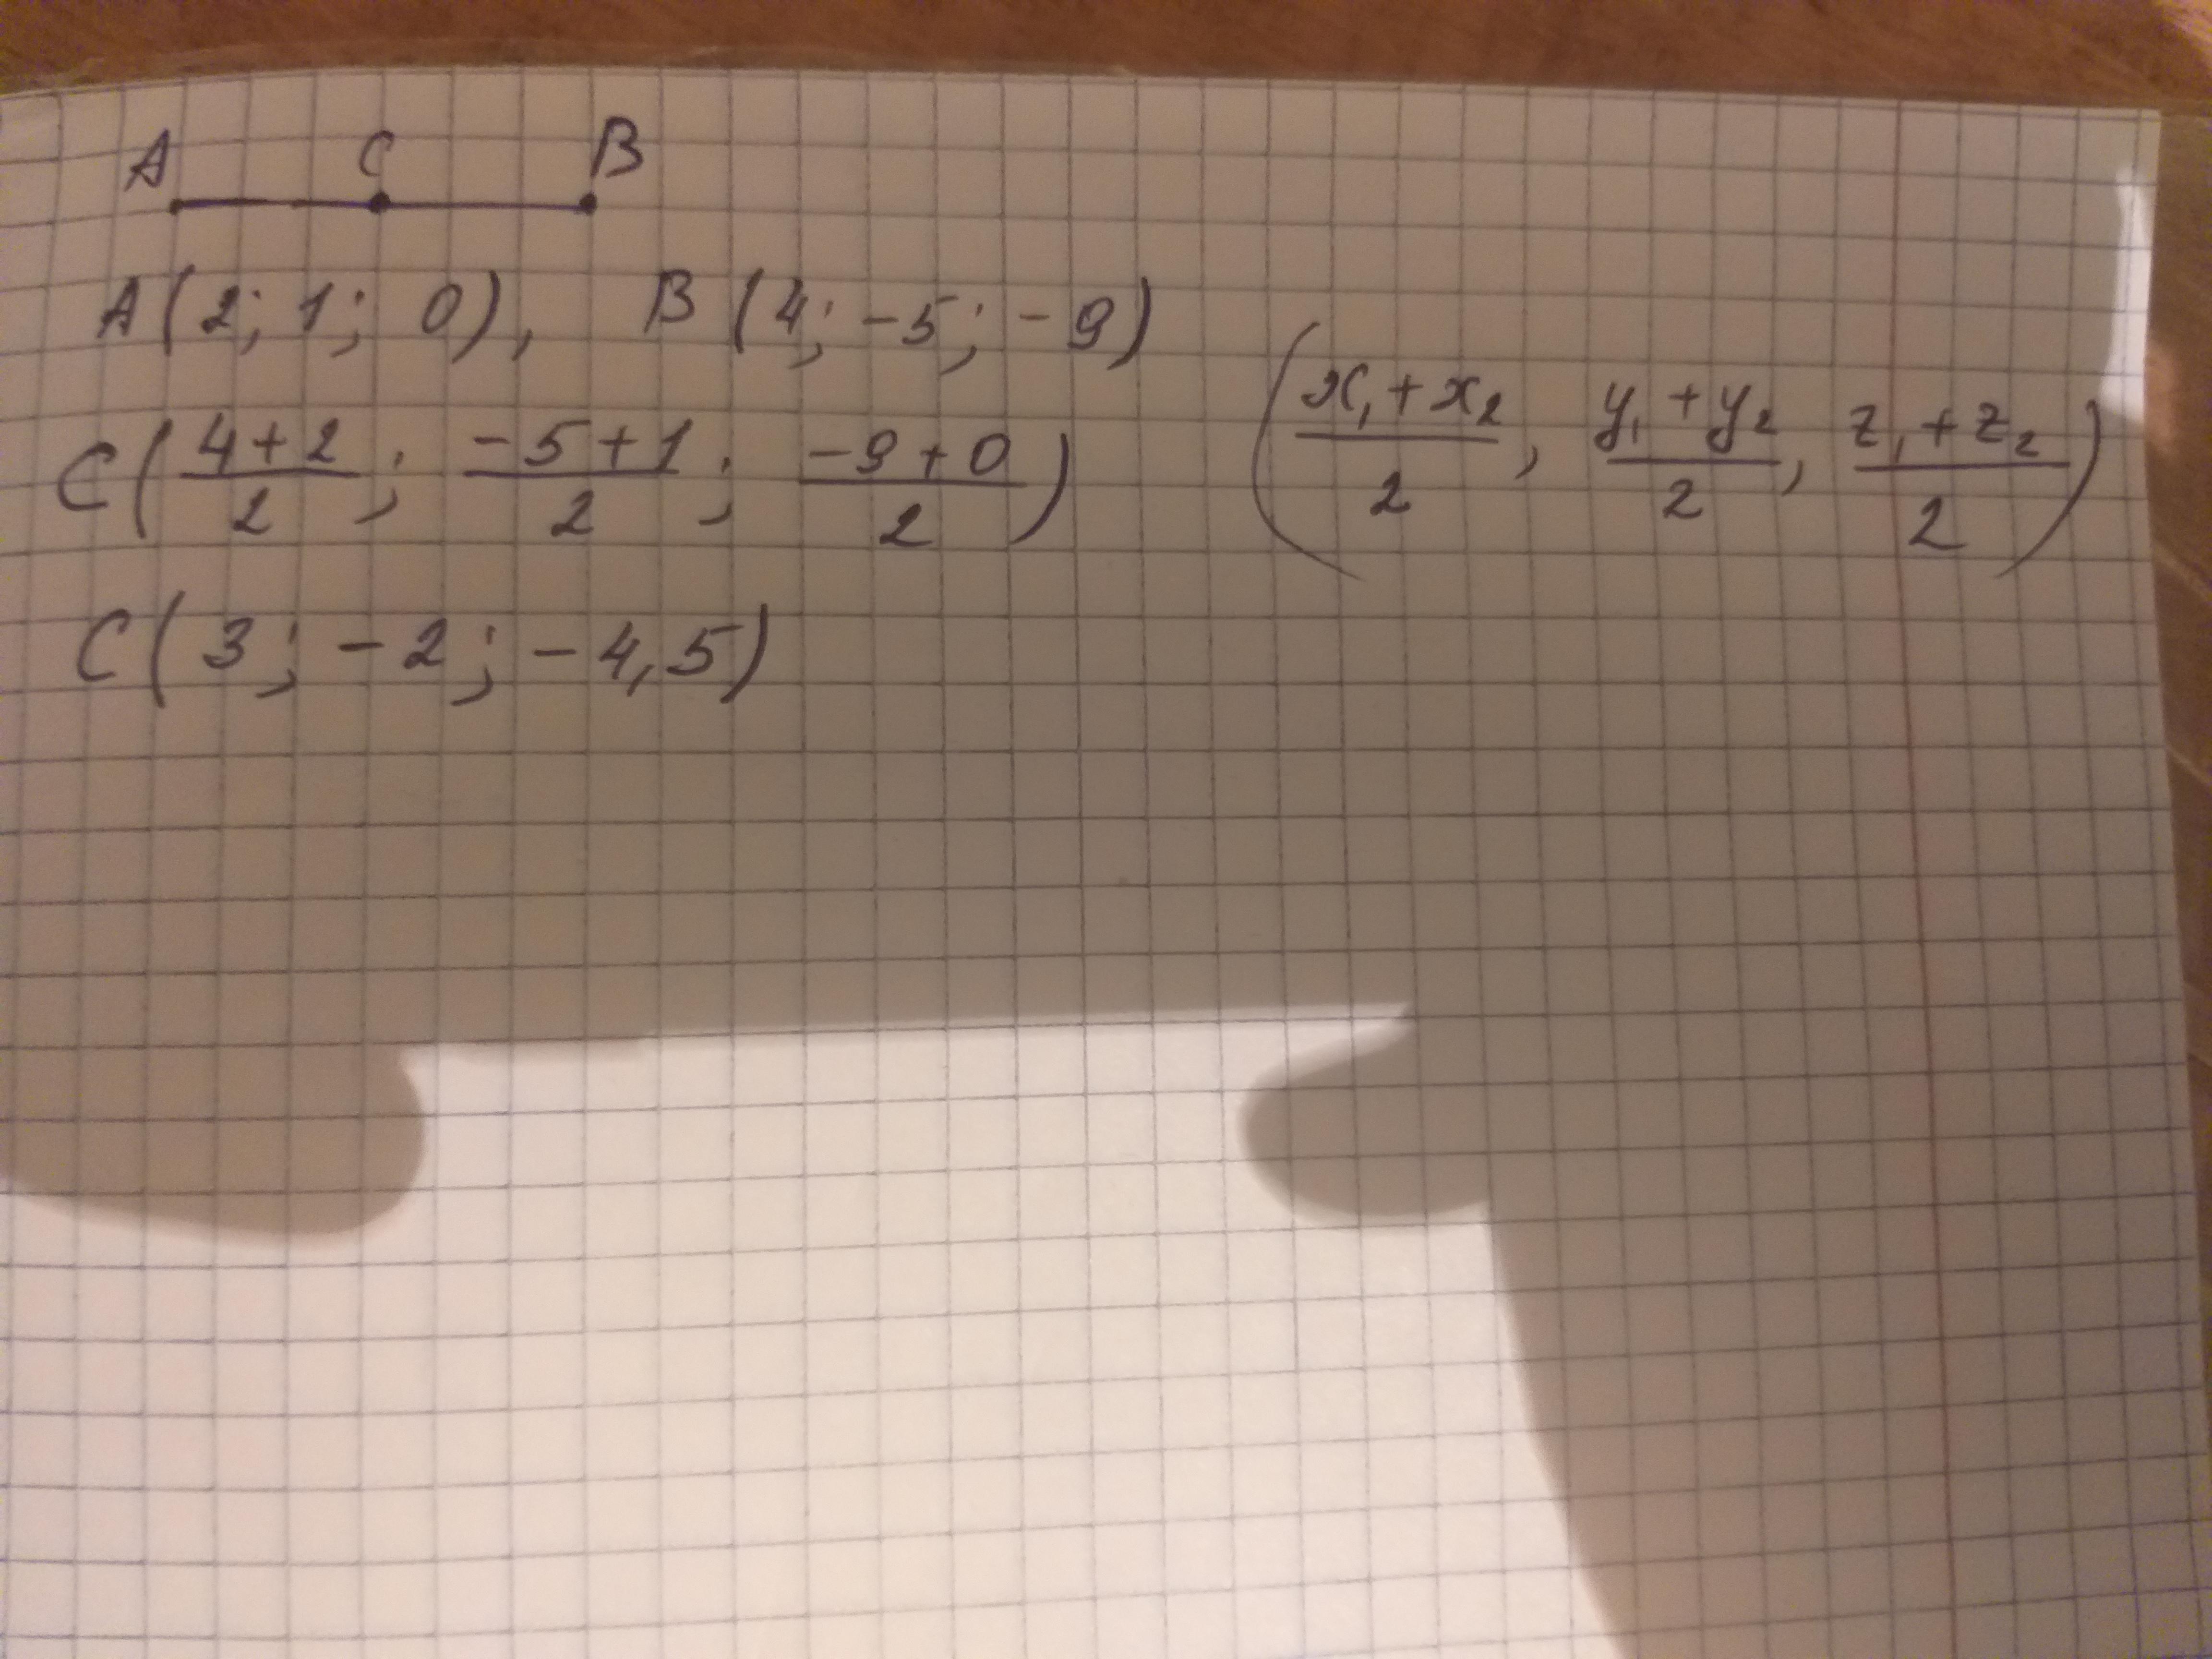 A C B
A(2; 1; 0), B(4; -5; -9)
C((4+2)/2; (-5+1)/2; (-9+0)/2) ((x₁+x₂)/2, (y₁+y₂)/2, (z₁+z₂)/2)
C(3; -2; -4,5)